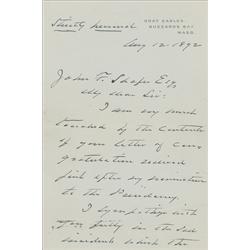 GRAY GABLES
BUZZARDS BAY
MASS.
Strictly personal
Aug 12 1892
John F. Shafer Esq
My dear Sir:
I am very much
touched by the Contents
of your letter of Con-
gratulation received
just after my nomination
to the Presidency.
I sympathize with
you fully in the sad
incidents which the